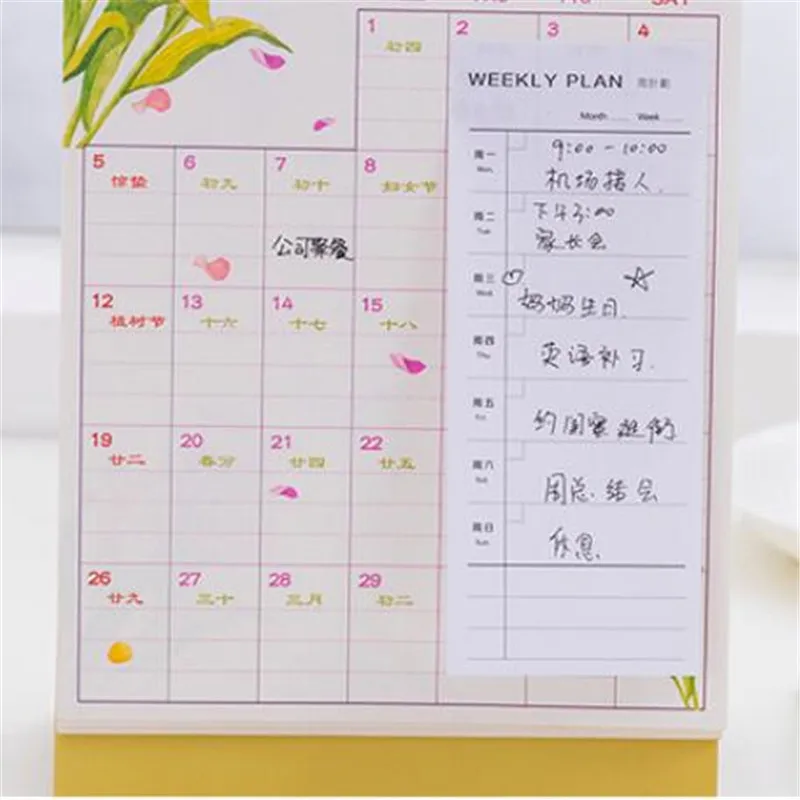 SAT
1 2 3 4
初四
WEEKLY PLAN 周計劃
Month Week
5 6 7 8
惊蛰 初九 初十 妇女节
公司聚餐
12 13 14 15
植树节 十六 十七 十八
19 20 21 22
廿二 春分 廿四 廿五
26 27 28 29
廿九 三十 三月 初二
周一 9:00-10:00
Mon 机场接人.
周二 下午3:00
Tue 家长会
周三
Wed 妈妈生日.
周四 英语补习.
Thu
周五 约闺蜜逛街
Fri
周六 周总结会
Sat
周日 休息.
Sun